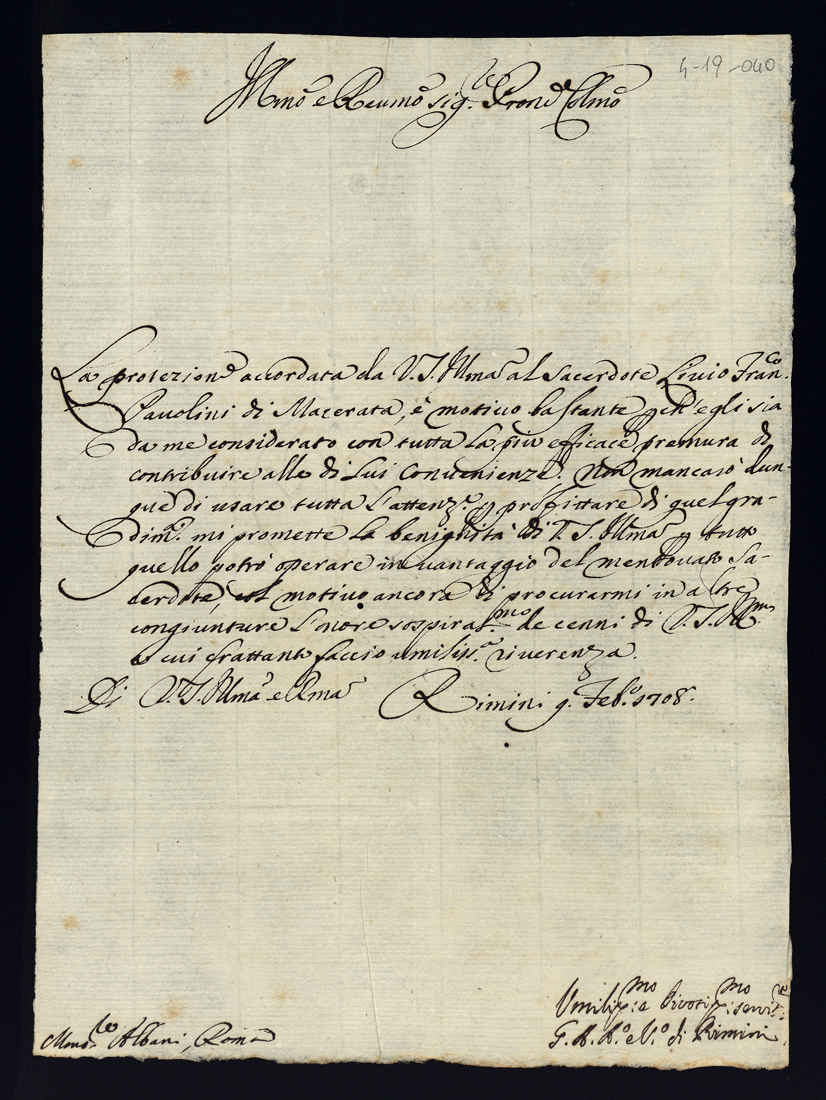 4-19-040
Illmo e Reumo Sig.re Prone Colmo
La protezione accordata da V. S. Illma al Sacerdote Liuio Fran.co
Pauolini di Macerata, è motiuo bastante ch'egli sia
da me considerato con tutta la più efficace premura di
contribuire alle di lui conuenienze. Non mancarò dun-
que di usare tutta l'attenz.e profittare di quel gra-
dim.o mi promette la benignità di V. S. Illma tutto
quello potrò operare in uantaggio del mentouato Sa-
cerdote, col motiuo ancora di procurarmi in altre
congiunture l'onore sospirat.mo de cenni di V. S. Illma
a cui frattanto faccio umiliss.a riuerenza.
Di V. S. Illma e Rma Rimini 9. Feb.o 1708.
Umiliss.mo e Diuotiss.mo seruit.re
G. A. A.o e V.o di Rimini
Mons.re Albani, Roma